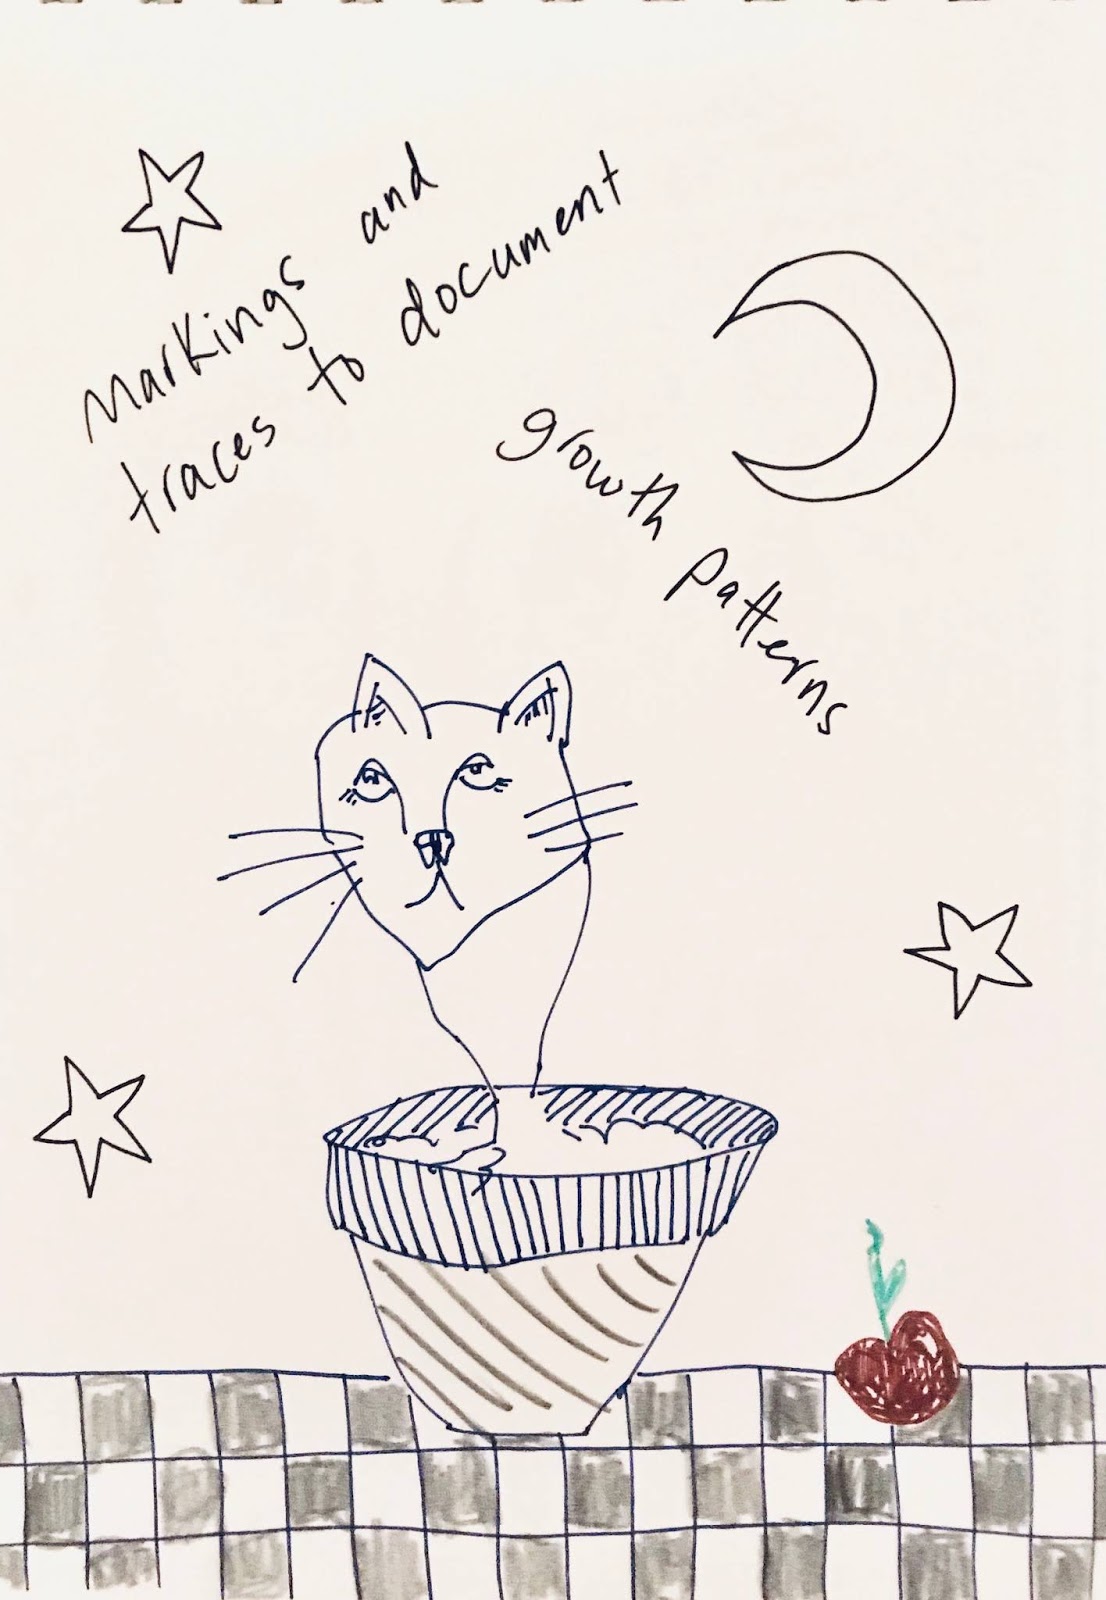 Markings and
traces to document
growth patterns